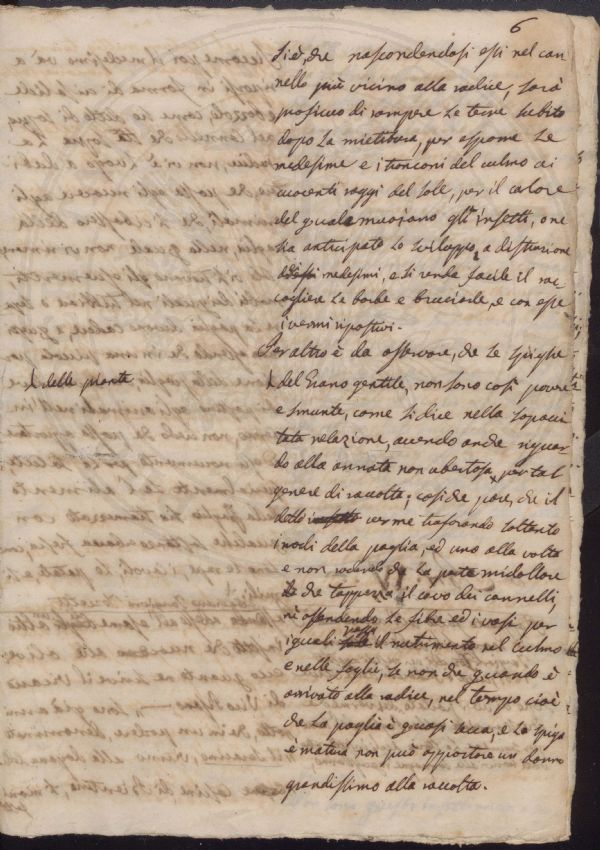 6
si è, che nascondendosi essi nel can
nello più vicino alla radice, sarà
proficuo di rompere le terre subito
dopo la mietitura, per esporre le
medesime e i tronconi del culmo ai
cuocenti raggi del sole, per il calore
del quale muoiano gli insetti, o ne
sia anticipato lo sviluppo, a distruzione
medesimi, e si renda facile il rac
cogliere le barbe e bruciarle, e con esse
i vermi ripostivi.
Per altro è da osservare, che le spighe
delle piante
del Grano gentile, non sono così povere
e smunte, come si dice nella sopraci
tata relazione, avendo anche riguar
do alla annata non ubertosa, per tal
genere di raccolta; cosiche pare, che il
detto insetto verme traforando soltanto
i nodi della paglia, ed uno alla volta
e non rodendo che la parte midollare
che tappezza il cavo dei cannelli,
nè offendendo le fibre ed i vasi per
i quali passa il nutrimento nel culmo
e nelle foglie, se non che quando è
arrivato alla radice, nel tempo cioè
che la paglia è quasi secca, e la spiga
è matura non può apportare un danno
grandissimo alla raccolta.